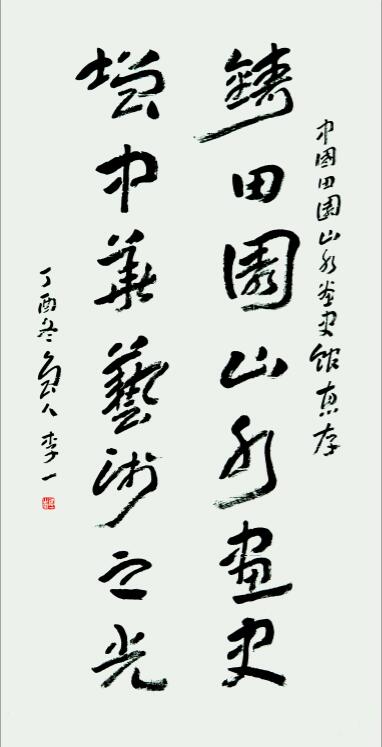 中國田園山水畫史館惠存
鑄田園山水畫史
增中華藝術之光
丁酉冬人李一